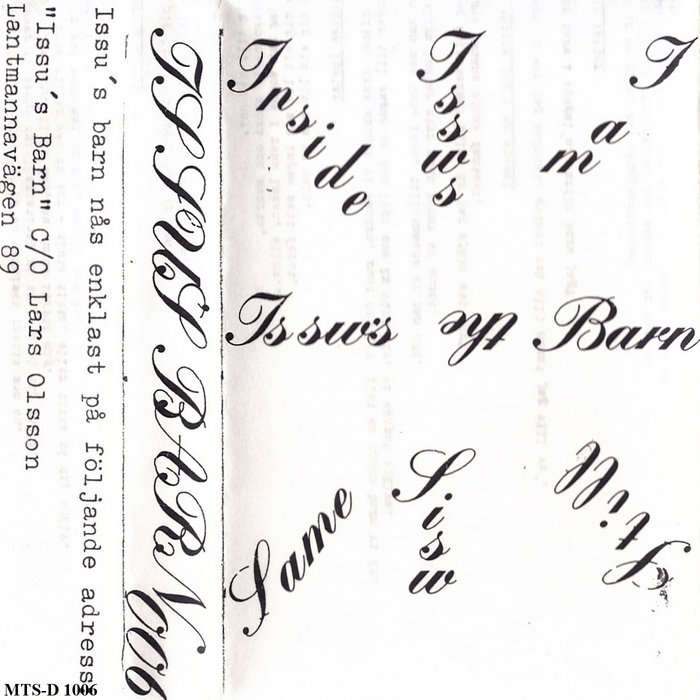 Inside
Issws
I am
Issws
the
Barn
Same
Sisw
Still
ISSUS BARN 006
Issu´s barn nås enklast på följande adress
"Issu´s Barn" C/O Lars Olsson
Lantmannavägen 89
MTS-D 1006